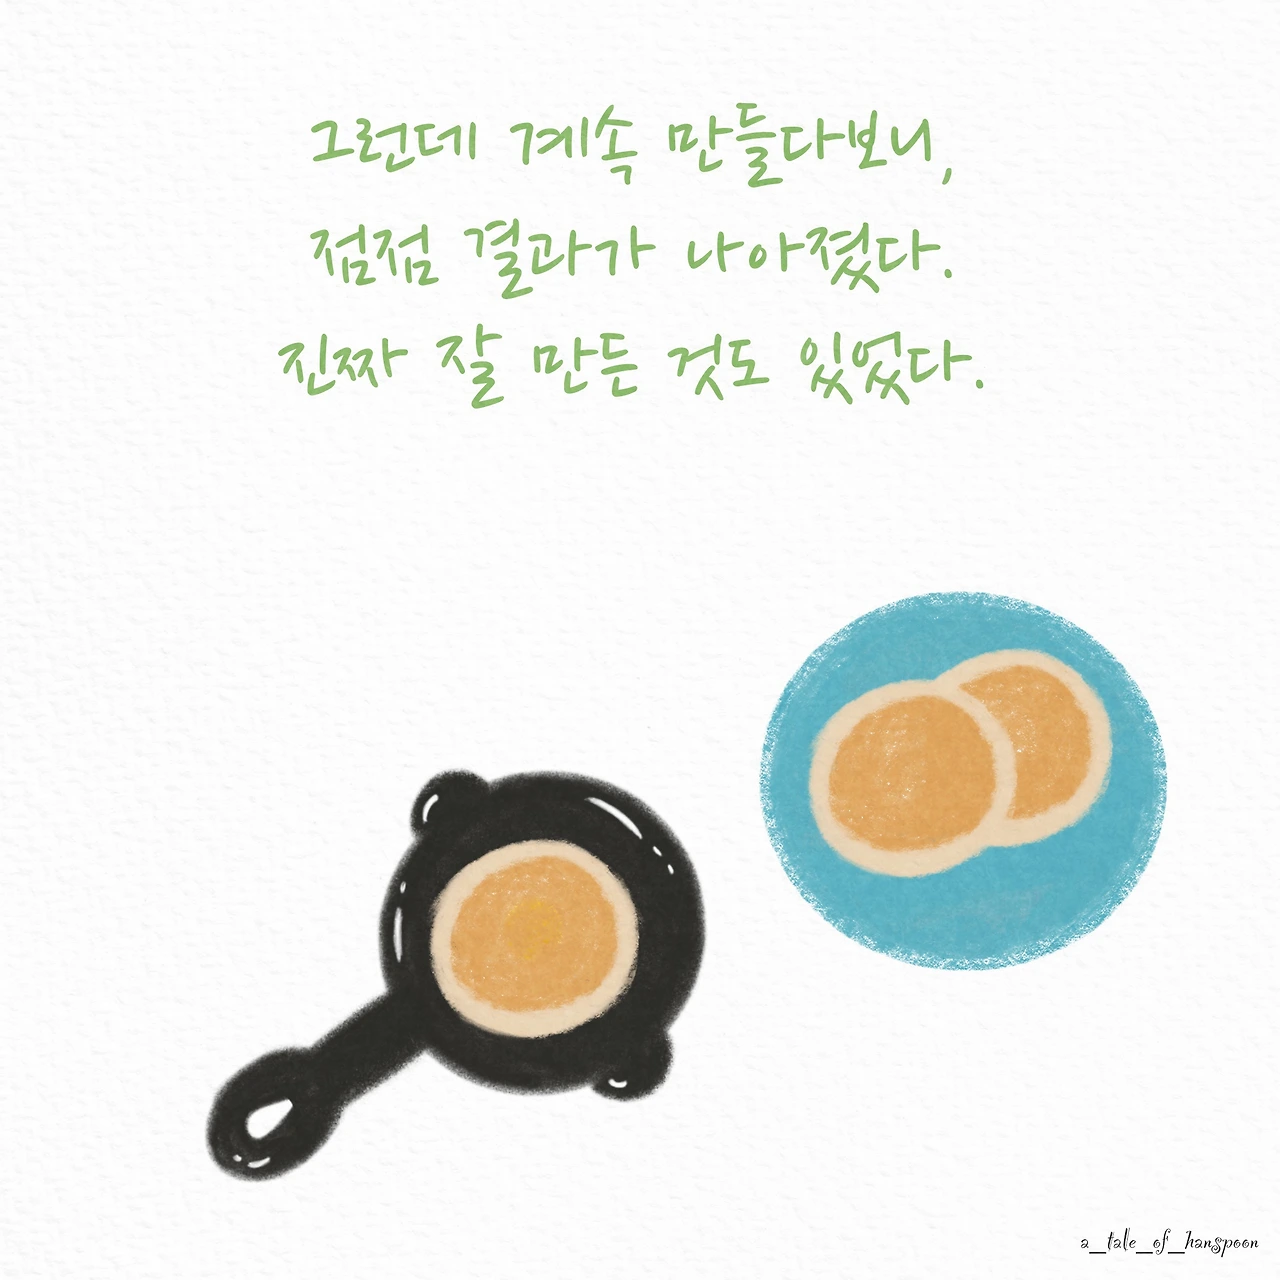 그런데 계속 만들다보니,
점점 결과가 나아졌다.
진짜 잘 만든 것도 있었다.
a_tale_of_hanspoon